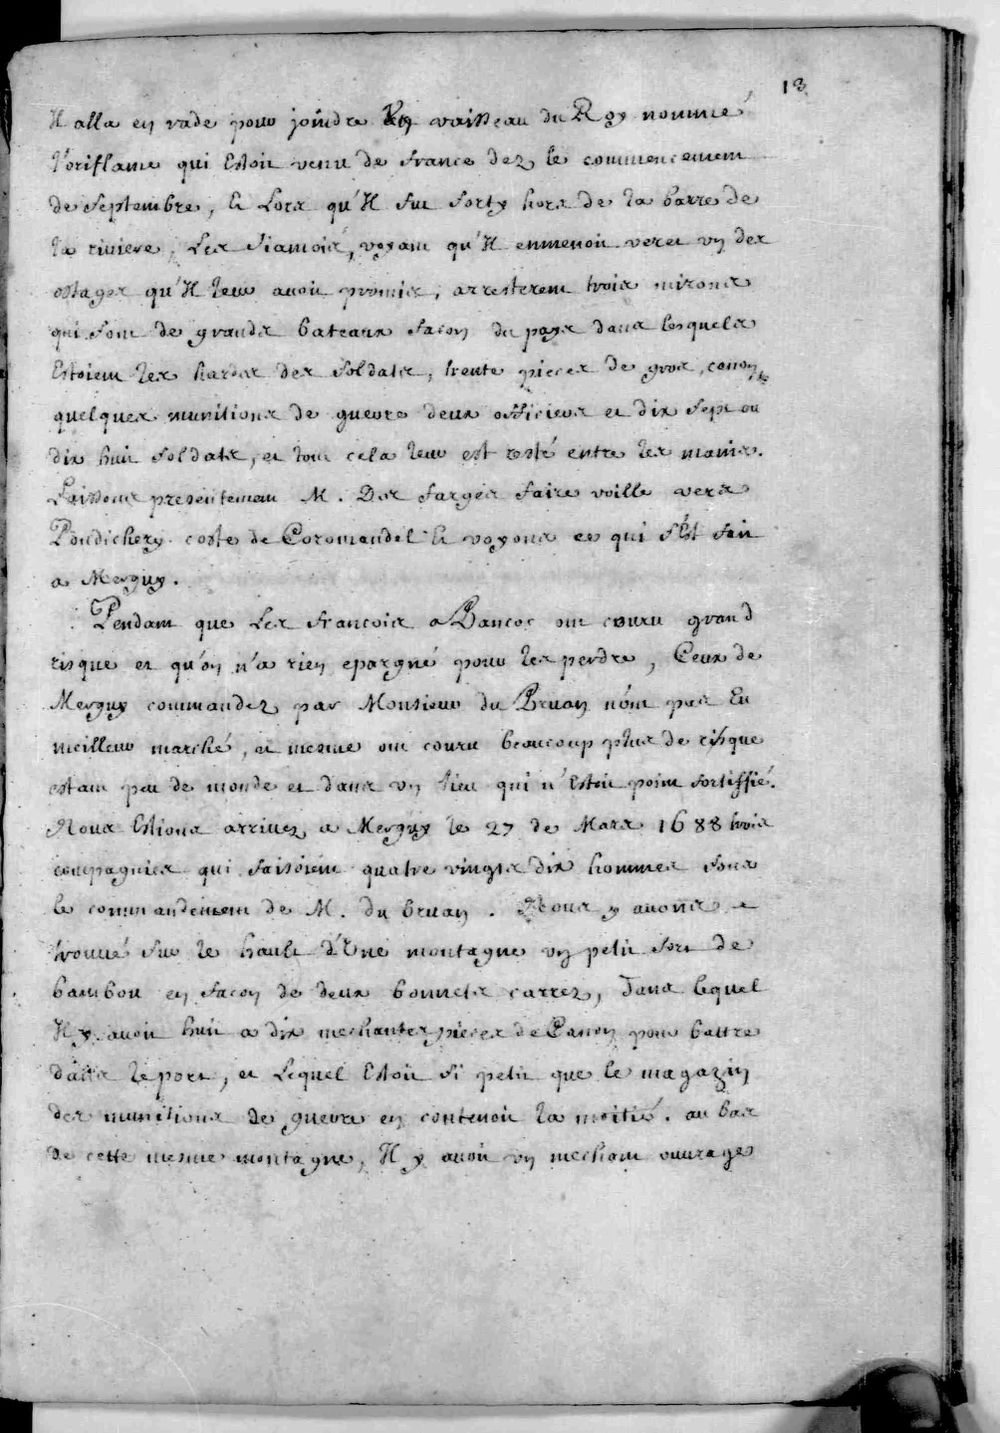 13
Il alla en rade pour joindre Un vaisseau du Roy nommé
l'oriflame qui Estoit venu de france dez le commencement
de septembre, et Lors qu'Il fut sorty hors de la barre de
la riviere, Les siamois, voyant qu'Il enmenoit veret un des
ostages qu'Il leur avoit promis, arresterent trois mirons
qui sont de grands bateaux facon du pays dans lesquels
Estoient les hardes des soldats, trente pieces de gros canons
quelques munitions de guerre deux officiers et dix sept ou
dix huit soldats, et tout cela leur est resté entre les mains.
Laissons presentement M. Des farges faire voille vers
Pondichery coste de Coromandel Et voyons ce qui s'Est fait
a Merguy.
Pendant que Les francois a Bancoc ont couru grand
risque et qu'on n'a rien epargné pour les perdre, Ceux de
Merguy commandez par Monsieur du Bruan n'ont pas Eu
meilleur marché, et mesme ont couru beaucoup plus de risque
estant peu de monde et dans un lieu qui n'Estoit point fortiffié.
Nous Estions arrivez a Merguy le 27 de Mars 1688 trois
compagnies qui faisoient quatre vingts dix hommes sous
le commandement de M. du bruan. Nous y avons
trouvé sur le hault d'Une montagne un petit fort de
bambou en facon de deux bonnets carrez, Dans lequel
Il y avoit huit a dix meschantes pieces de Canon pour battre
dans le port, et Lequel Estoit si petit que le magazin
des munitions de guerre en contenoit la moitié. au bas
de cette mesme montagne, Il y avoit un mechant ouvrage